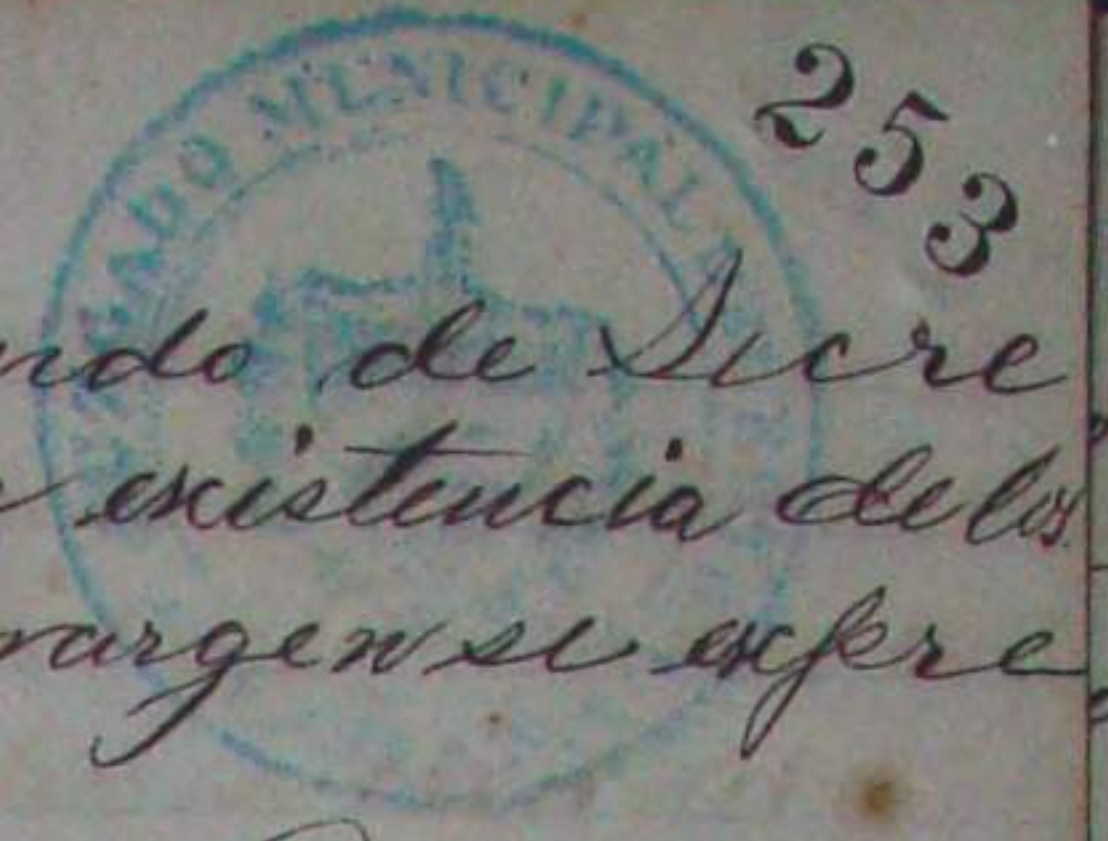 253
JUZGADO MUNICIPAL
ndo de Sucre
existencia de los
margen se expre